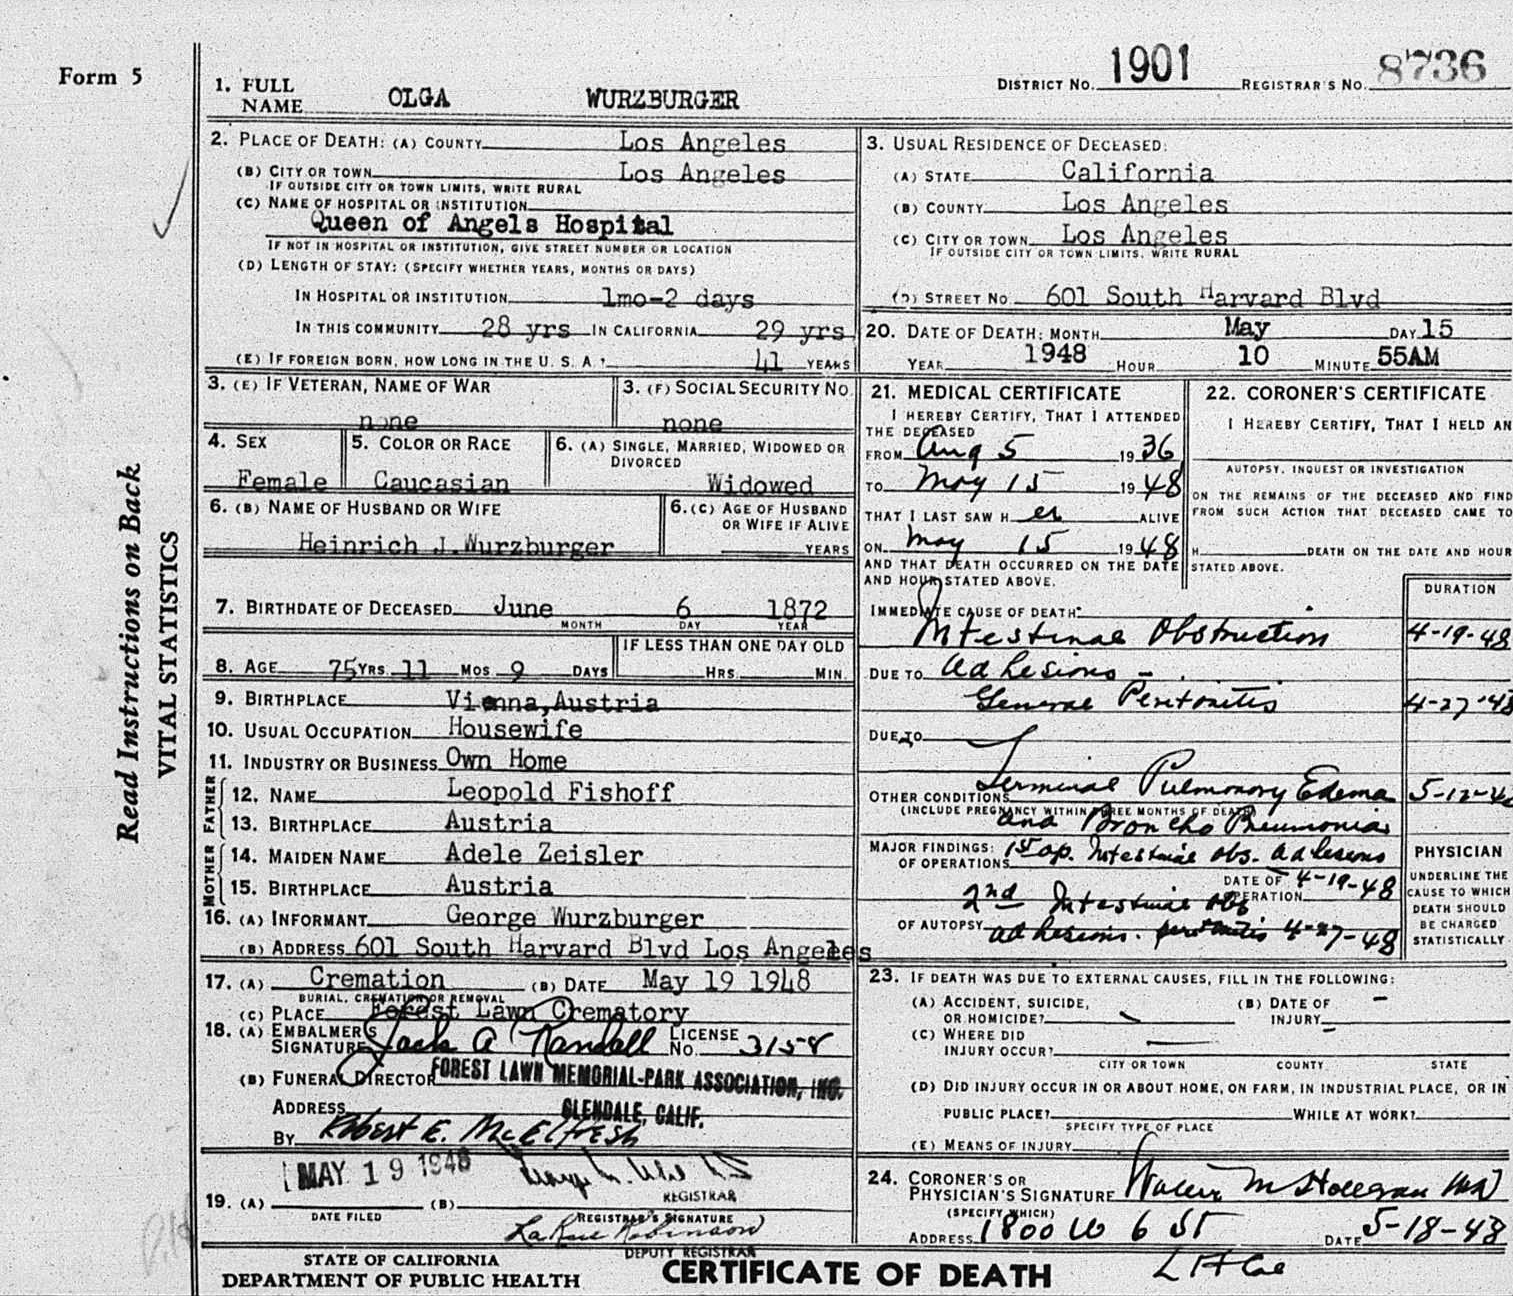 Form 5
DISTRICT NO. 1901 REGISTRAR'S NO. 8736
1. FULL NAME OLGA WURZBURGER
2. PLACE OF DEATH: (A) COUNTY Los Angeles
(B) CITY OR TOWN Los Angeles
IF OUTSIDE CITY OR TOWN LIMITS, WRITE RURAL
(C) NAME OF HOSPITAL OR INSTITUTION
Queen of Angels Hospital
IF NOT IN HOSPITAL OR INSTITUTION, GIVE STREET NUMBER OR LOCATION
(D) LENGTH OF STAY: (SPECIFY WHETHER YEARS, MONTHS OR DAYS)
IN HOSPITAL OR INSTITUTION 1mo-2 days
IN THIS COMMUNITY 28 yrs IN CALIFORNIA 29 yrs
(E) IF FOREIGN BORN, HOW LONG IN THE U. S. A? 41 YEARS
3. USUAL RESIDENCE OF DECEASED:
(A) STATE California
(B) COUNTY Los Angeles
(C) CITY OR TOWN Los Angeles
IF OUTSIDE CITY OR TOWN LIMITS. WRITE RURAL
(D) STREET NO. 601 South Harvard Blvd
20. DATE OF DEATH: MONTH May DAY 15
YEAR 1948 HOUR 10 MINUTE 55AM
3. (E) IF VETERAN, NAME OF WAR
none
3. (F) SOCIAL SECURITY NO.
none
4. SEX
Female
5. COLOR OR RACE
Caucasian
6. (A) SINGLE, MARRIED, WIDOWED OR
DIVORCED
Widowed
6. (B) NAME OF HUSBAND OR WIFE
Heinrich J.Wurzburger
6. (C) AGE OF HUSBAND
OR WIFE IF ALIVE
YEARS
7. BIRTHDATE OF DECEASED June 6 1872
MONTH DAY YEAR
8. AGE 75 YRS. 11 MOS 9 DAYS
IF LESS THAN ONE DAY OLD
HRS. MIN.
9. BIRTHPLACE Vienna,Austria
10. USUAL OCCUPATION Housewife
11. INDUSTRY OR BUSINESS Own Home
FATHER
12. NAME Leopold Fishoff
13. BIRTHPLACE Austria
MOTHER
14. MAIDEN NAME Adele Zeisler
15. BIRTHPLACE Austria
16. (A) INFORMANT George Wurzburger
(B) ADDRESS 601 South Harvard Blvd Los Angeles
17. (A) Cremation (B) DATE May 19 1948
BURIAL, CREMATION OR REMOVAL
(C) PLACE Forest Lawn Crematory
18. (A) EMBALMER'S
SIGNATURE Jack A Randall LICENSE NO. 3158
(B) FUNERAL DIRECTOR FOREST LAWN MEMORIAL-PARK ASSOCIATION, INC.
ADDRESS GLENDALE, CALIF.
BY Robert E. McElfresh
MAY 19 1948
REGISTRAR
19. (A) (B)
DATE FILED REGISTRAR'S SIGNATURE
LaRue Robinson
DEPUTY REGISTRAR
21. MEDICAL CERTIFICATE
I HEREBY CERTIFY, THAT I ATTENDED
THE DECEASED
FROM Aug 5 1936
TO May 15 1948
THAT I LAST SAW H er ALIVE
ON May 15 1948
AND THAT DEATH OCCURRED ON THE DATE
AND HOUR STATED ABOVE.
22. CORONER'S CERTIFICATE
I HEREBY CERTIFY, THAT I HELD AN
AUTOPSY, INQUEST OR INVESTIGATION
ON THE REMAINS OF THE DECEASED AND FIND
FROM SUCH ACTION THAT DECEASED CAME TO
H DEATH ON THE DATE AND HOUR
STATED ABOVE.
DURATION
IMMEDIATE CAUSE OF DEATH:
Intestinal Obstruction 4-19-48
DUE TO Adhesions -
General Peritonitis 4-27-48
DUE TO
Terminal Pulmonary Edema 5-12-48
OTHER CONDITIONS
(INCLUDE PREGNANCY WITHIN THREE MONTHS OF DEATH)
and Broncho Pneumonia
MAJOR FINDINGS: 1st op. Intestinal obs. adhesions
OF OPERATIONS
DATE OF OPERATION 4-19-48
2nd Intestinal obs
OF AUTOPSY adhesions. peritonitis 4-27-48
PHYSICIAN
UNDERLINE THE
CAUSE TO WHICH
DEATH SHOULD
BE CHARGED
STATISTICALLY
23. IF DEATH WAS DUE TO EXTERNAL CAUSES, FILL IN THE FOLLOWING:
(A) ACCIDENT, SUICIDE,
OR HOMICIDE?
(B) DATE OF
INJURY -
(C) WHERE DID
INJURY OCCUR?
CITY OR TOWN COUNTY STATE
(D) DID INJURY OCCUR IN OR ABOUT HOME, ON FARM, IN INDUSTRIAL PLACE, OR IN
PUBLIC PLACE? WHILE AT WORK?
SPECIFY TYPE OF PLACE
(E) MEANS OF INJURY
24. CORONER'S OR
PHYSICIAN'S SIGNATURE
(SPECIFY WHICH)
ADDRESS 1800 W 6 ST DATE 5-18-48
STATE OF CALIFORNIA
DEPARTMENT OF PUBLIC HEALTH
CERTIFICATE OF DEATH
Read Instructions on Back
VITAL STATISTICS